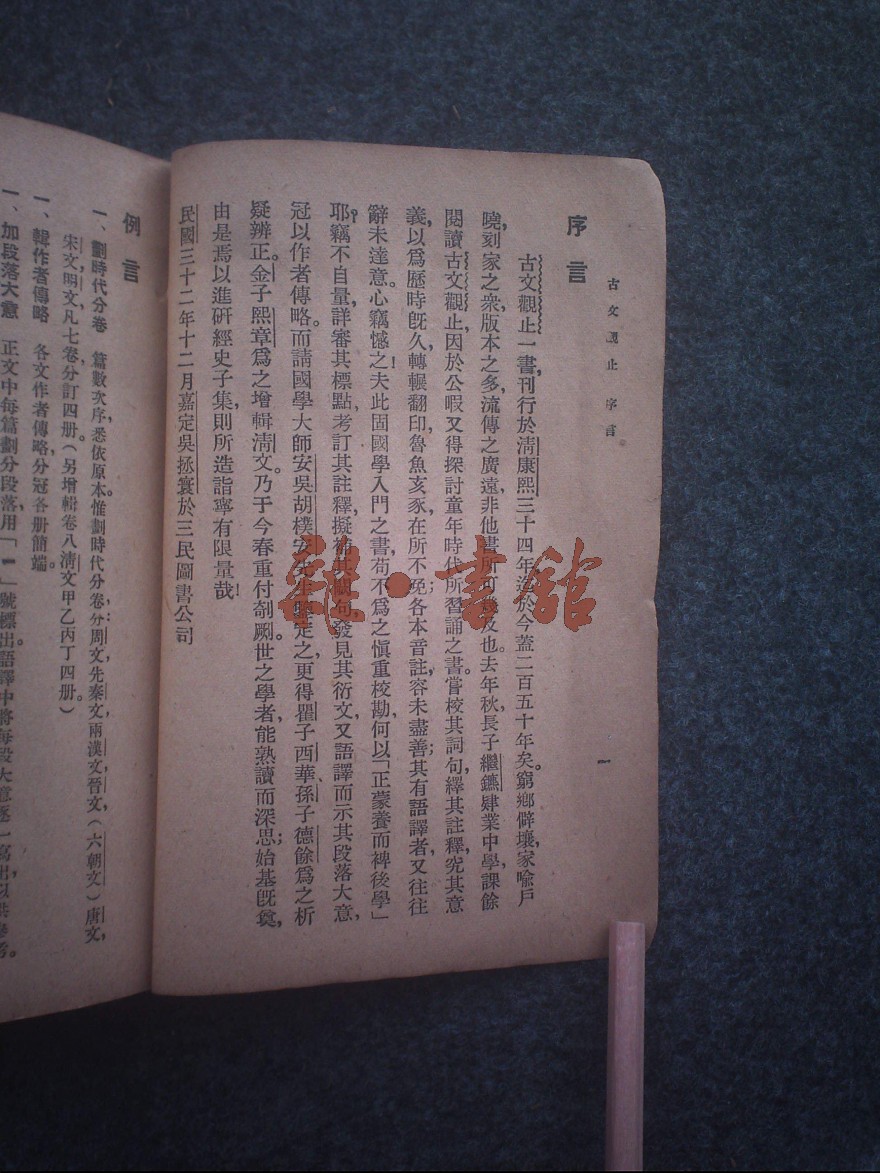 古文觀止 序言
一
序言
古文觀止一書，刊行於清康熙三十四年，迄於今蓋二百五十年矣。窮鄉僻壤，家喩戶
曉，刻家之衆，版本之多，流傳之廣遠，非他書所可幾及也。去年秋，長子繼鑣肄業中學，課餘
閱讀古文觀止，因於公暇又得探討童年時代所習誦之書。嘗校其詞句，繹其註釋，究其意
義，以爲歷時旣久，轉輾翻印，魯魚亥豕，在所不免；各本音註，容未盡善；其有語譯者，又往往
辭未達意，心竊憾之！夫此固國學入門之書，苟不爲之愼重校勘，何以「正蒙養而裨後學」
耶？竊不自量，詳審其標點，考訂其註釋，擬補其闕句，發見其衍文，又語譯而示其段落大意，
冠以作者傳略。而請國學大師安吳胡樸安先生鑒定之，更得瞿子西華、孫子德餘爲之析
疑辨正。金子熙章爲之增輯清文。乃于今春重付剞劂。世之學者，能熟讀而深思；始基旣奠，
由是焉以進研經史子集，則所造詣，寧有限量哉！
民國三十二年十二月嘉定吳拯寰於三民圖書公司
例言
一、劃時代分卷 篇數次序，悉依原本。惟劃時代分卷：分周文，先秦文，兩漢文，晉文，（六朝文）唐文，
宋文，明文，凡七卷，分訂四册。（另增輯卷八清文甲乙丙丁四册。）
一、輯作者傳略 各文作者傳略，分冠各册簡端。
一、加段落大意 正文中每篇劃分段落，用「━」號標出。語譯中將每段大意逐一寫出，以供參考。
雜·書館